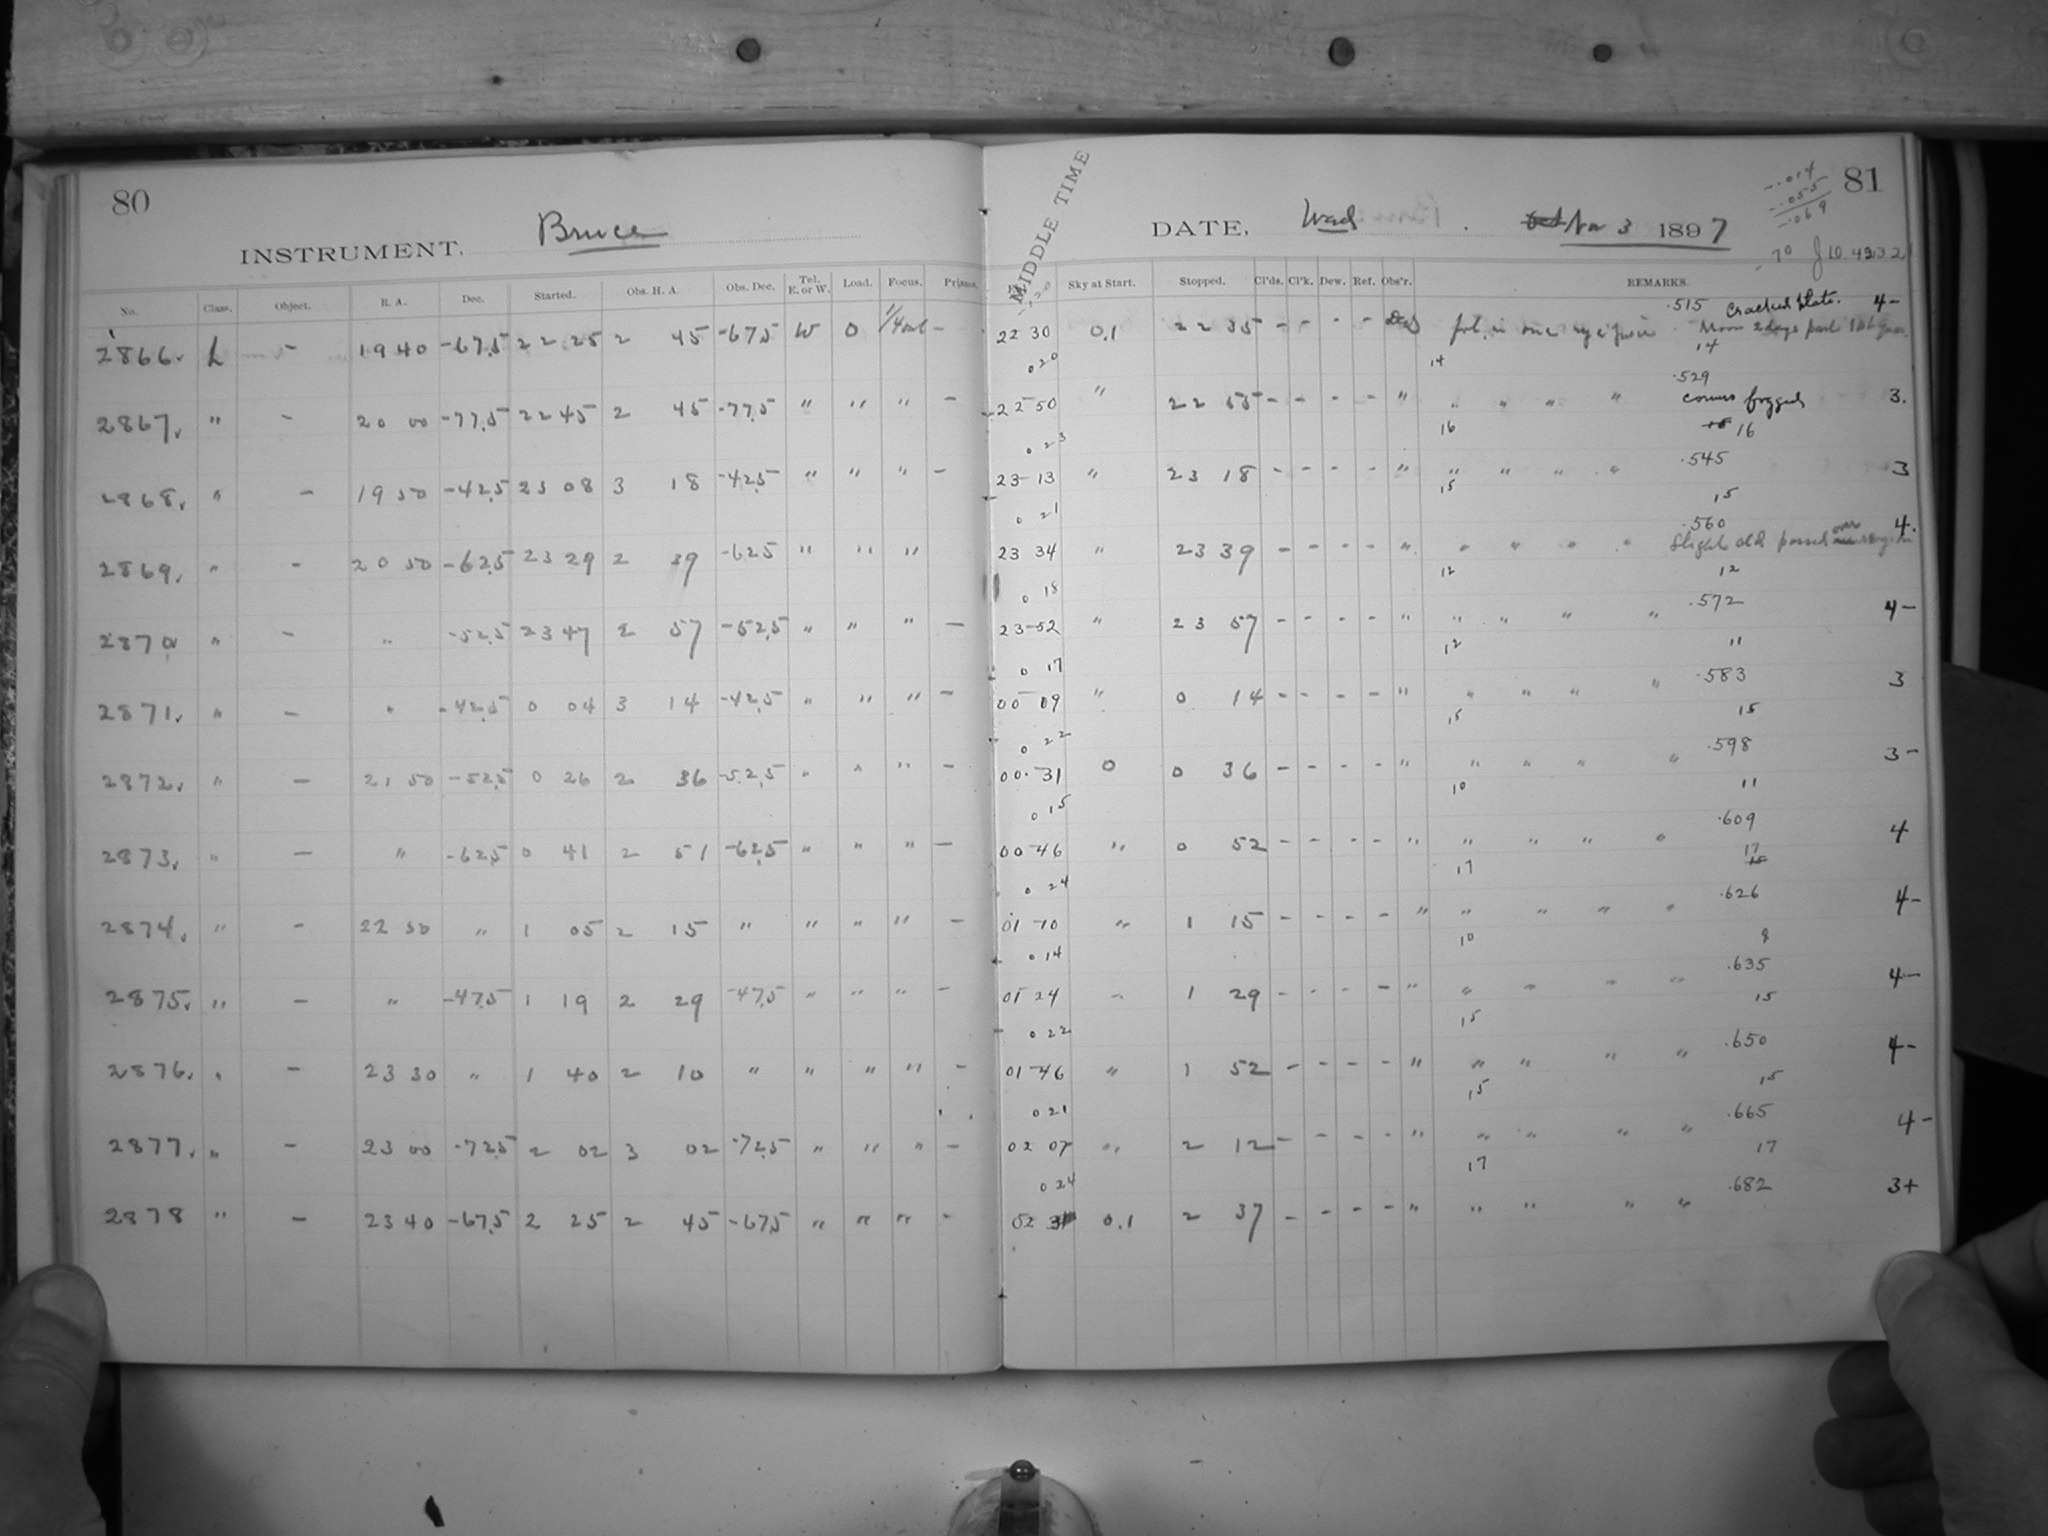 80
INSTRUMENT, Bruce
No. Class. Object. R. A. Dec. Started. Obs. H. A. Obs. Dec. Tel. E. or W. Load. Focus. Prisms.
2866. L - 19 40 -67.5 22 25 2 45 -67.5 W 0 1/4 out -
2867. " - 20 00 -77.5 22 45 2 45 -77.5 " " " -
2868. " - 19 50 -42.5 23 08 3 18 -42.5 " " " -
2869. " - 20 50 -62.5 23 29 2 39 -62.5 " " "
2870 " - " -52.5 23 47 2 57 -52.5 " " " -
2871. " - " -42.5 0 04 3 14 -42.5 " " " -
2872. " - 21 50 -52.5 0 26 2 36 -52.5 " " " -
2873. " - " -62.5 0 41 2 51 -62.5 " " " -
2874. " - 22 50 " 1 05 2 15 " " " " -
2875. " - " -47.5 1 19 2 29 -47.5 " " " -
2876. " - 23 30 " 1 40 2 10 " " " " -
2877. " - 23 00 -72.5 2 02 3 02 -72.5 " " " -
2878 " - 23 40 -67.5 2 25 2 45 -67.5 " " " -
81
MIDDLE TIME
-.014
-.055
-.069
DATE, Wed Nov 3 1897
Sky at Start. Stopped. Cl'ds. Cl'k. Dew. Ref. Obs'r. REMARKS.
.515 Cracked plate. 4-
22 30 0.1 22 35 - - - - Moon 2 days past 1st Quar.
0 20 14 14
.529
22 50 " 22 55 - - - - " " " " " corners fogged 3.
0 23 16 16
.545
23 13 " 23 18 - - - - " " " " " 3
0 21 15 15
.560 4.
23 34 " 23 39 - - - - " " " " " Slight cld passed over region
0 18 12 12
.572
23 52 " 23 57 - - - - " " " " " 4-
0 17 12 11
.583
00 09 " 0 14 - - - - " " " " " 3
0 22 15 15
.598
00 31 0 0 36 - - - - " " " " " 3-
0 15 10 11
.609
00 46 " 0 52 - - - - " " " " " 4
0 24 17 17
.626
01 10 " 1 15 - - - - " " " " " 4-
0 14 10 8
.635
01 24 " 1 29 - - - - " " " " " 4-
0 22 15 15
.650
01 46 " 1 52 - - - - " " " " " 4-
0 21 15 15
.665
02 07 " 2 12 - - - - " " " " " 4-
0 24 17 17
.682
02 31 0.1 2 37 - - - - " " " " " 3+